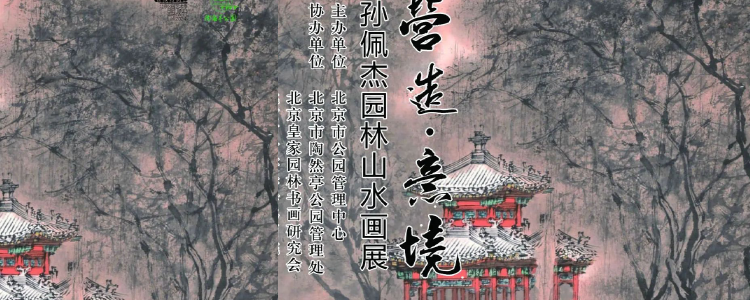 营造·意境
孙佩杰园林山水画展
主办单位 北京市公园管理中心
协办单位 北京市陶然亭公园管理处
北京皇家园林书画研究会